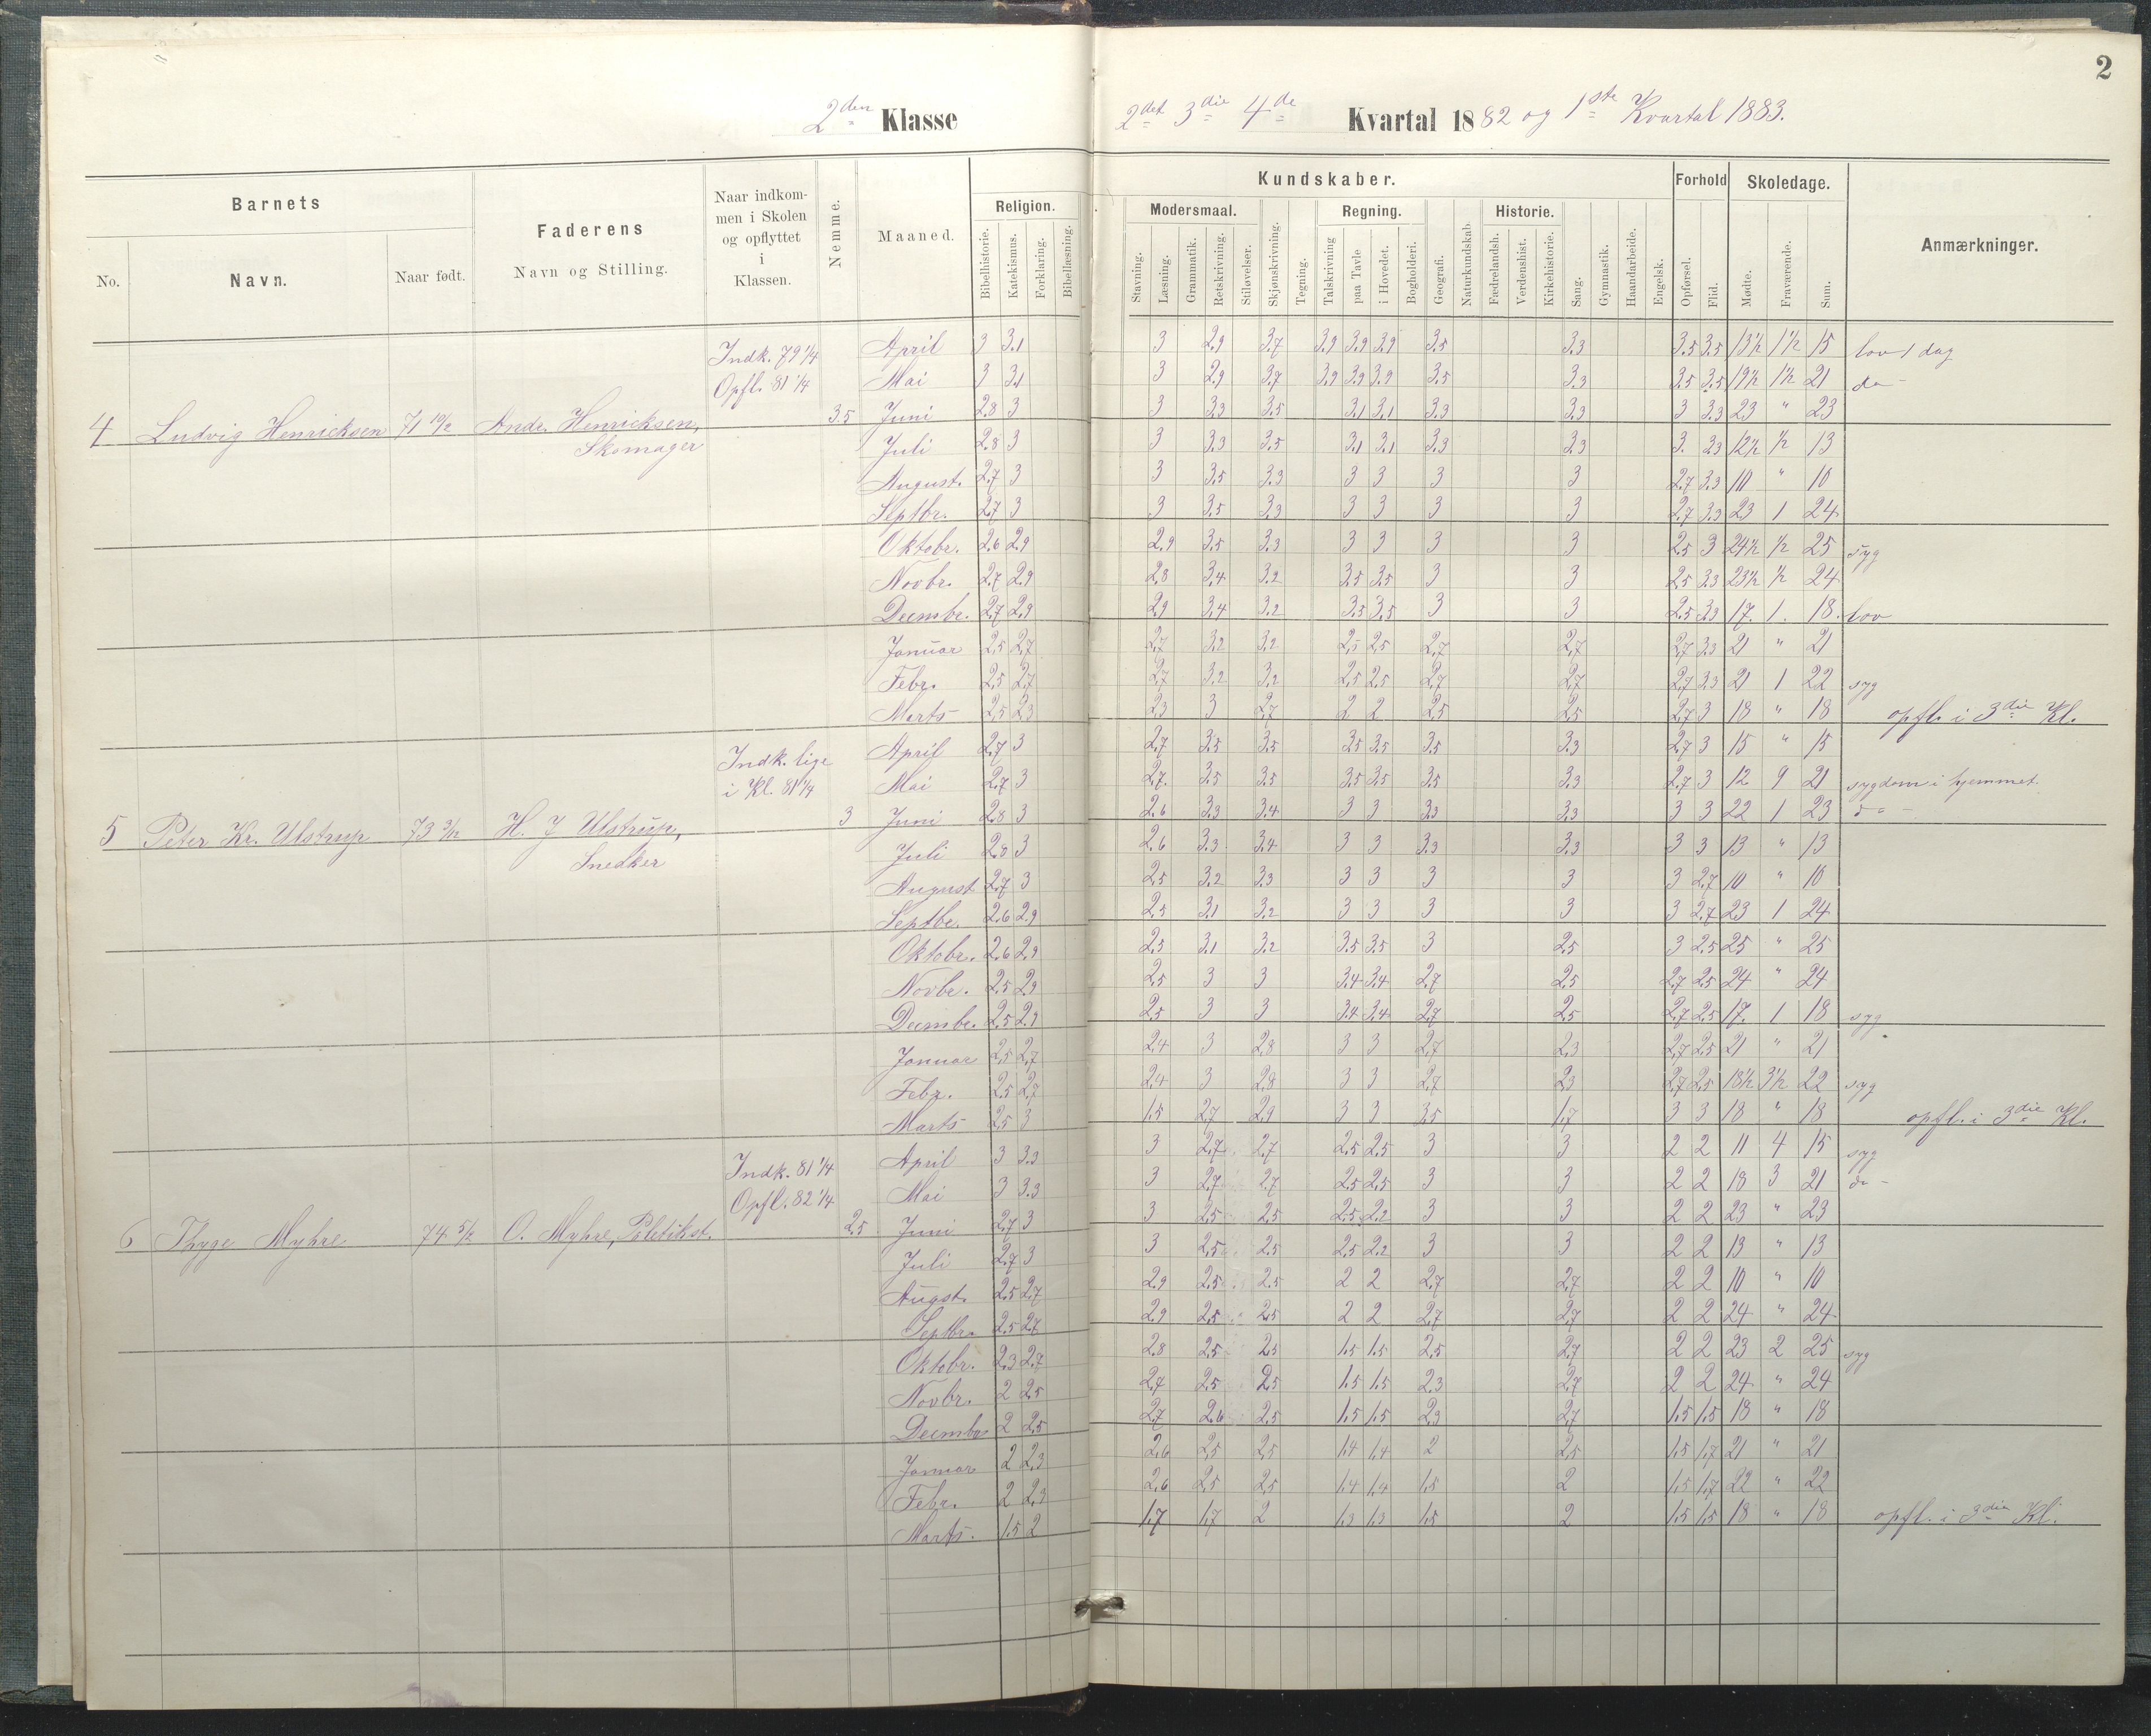 2
2den Klasse 2det 3die 4de Kvartal 1882 og 1ste Kvartal 1883.
Barnets
No. Navn. Naar født.
Faderens
Navn og Stilling.
Naar indkom-
men i Skolen
og opflyttet
i
Klassen.
Nemme.
Maaned.
Kundskaber.
Religion.
Bibelhistorie. Katekismus. Forklaring. Bibellæsning.
Modersmaal.
Stavning. Læsning. Grammatik. Retskrivning. Stiløvelser.
Skjønskrivning. Tegning.
Regning.
Talskrivning paa Tavle i Hovedet. Bogholderi.
Geografi. Naturkundskab.
Historie.
Fædrelandsh. Verdenshist. Kirkehistorie.
Sang. Gymnastik. Haandarbeide. Engelsk.
Forhold
Opførsel. Flid.
Skoledage.
Mødte. Fraværende. Sum.
Anmærkninger.
4 Ludvig Henricksen 71 10/12 Andr. Henricksen,
Skomager
Indk. 79 1/4
Opfl. 81 1/4
3.5
April 3 3.1 3 2.9 3.7 3.9 3.9 3.9 3.5 3.3 3.5 3.5 13½ 1½ 15 lov 1 dag
Mai 3 3.1 3 2.9 3.7 3.9 3.9 3.9 3.5 3.3 3.5 3.5 19½ 1½ 21 do -
Juni 2.8 3 3 3.3 3.5 3.1 3.1 3.3 3.3 3 3.3 23 " 23
Juli 2.8 3 3 3.3 3.5 3.1 3.1 3.3 3.3 3. 3.3 12½ ½ 13
August. 2.7 3 3 3.5 3.3 3 3 3 3 2.7 3.3 10 " 10
Septbr. 2.7 3 3 3.5 3.3 3 3 3 3 2.7 3.3 23 1 24
Oktobr. 2.6 2.9 2.9 3.5 3.3 3 3 3 3 2.5 3 24½ ½ 25 syg
Novbr. 2.7 2.9 2.8 3.4 3.2 3.5 3.5 3 3 2.5 3.3 23½ ½ 24
Decmbr. 2.7 2.9 2.9 3.4 3.2 3.5 3.5 3 3 2.5 3.3 17. 1. 18. lov
Januar 2.5 2.7 2.7 3.2 3.2 2.5 2.5 2.7 2.7 2.7 3.3 21 " 21
Febr. 2.5 2.7 2.7 3.2 3.2 2.5 2.5 2.7 2.7 2.7 3.3 21 1 22 syg
Marts 2.5 2.3 2.3 3 2.7 2 2 2.5 2.5 2.7 3 18 " 18 opfl. i 3die Kl.
5 Peter Kr. Ulstrup 73 3/12 H. J Ulstrup,
Snedker
Indk. lige
i Kl. 81 1/4
3
April 2.7 3 2.7 3.5 3.5 3.5 3.5 3.5 3.3 2.7 3 15 " 15
Mai 2.7 3 2.7. 3.5 3.5 3.5 3.5 3.5 3.3 2.7 3 12 9 21 sygdom i hjemmet.
Juni 2.8 3 2.6 3.3 3.4 3 3 3.3 3.3 3 3 22 1 23 do -
Juli 2.8 3 2.6 3.3 3.4 3 3 3.3 3.3 3 3 13 " 13
August 2.7 3 2.5 3.2 3.3 3 3 3 3 3 2.7 10 " 10
Septbr. 2.6 2.9 2.5 3.1 3.2 3 3 3 3 3 2.7 23 1 24
Oktobr. 2.6 2.9 2.5 3.1 3.2 3.5 3.5 3 2.5 3 2.5 25 " 25
Novbr. 2.5 2.9 2.5 3 3 3.4 3.4 2.7 2.5 2.7 2.5 24 " 24
Decmbr. 2.5 2.9 2.5 3 3 3.4 3.4 2.7 2.5 2.7 2.5 17. 1 18 syg
Januar 2.5 2.7 2.4 3 2.8 3 3 2.7 2.3 2.7 2.5 21 " 21
Febr. 2.5 2.7 2.4 3 2.8 3 3 2.7 2.3 2.7 2.5 18½ 3½ 22 syg
Marts 2.5 3 1.5 2.7 2.9 3 3 3.5 1.7 3 3 18 " 18 opfl. i 3die Kl.
6 Thyge Myhre 74 5/12 O. Myhre, Politikst.
Indk. 81 1/4
Opfl. 82 1/4
2.5
April 3 3.3 3 2.7 2.7 2.5 2.5 3 3 2 2 11 4 15 syg
Mai 3 3.3 3 2.7 2.7 2.5 2.5 3 3 2 2 18 3 21 do -
Juni 2.7 3 3 2.5 2.5 2.5 2.2 3 3 2 2 23 " 23
Juli 2.7 3 3 2.5 2.5 2.5 2.2 3 3 2 2 13 " 13
Augst. 2.5 2.7 2.9 2.5 2.5 2 2 2.7 2.7 2 2 10 " 10
Septbr. 2.5 2.7 2.9 2.5 2.5 2 2 2.7 2.7 2 2 24 " 24
Oktobr. 2.3 2.7 2.8 2.5 2.5 1.5 1.5 2.5 2.7 2 2 23 2 25 syg
Novbr. 2 2.5 2.7 2.5 2.5 1.5 1.5 2.3 2.7 2 2 24 " 24
Decmbr 2 2.5 2.7 2.6 2.5 1.5 1.5 2.3 2.7 1.5 1.5 18 " 18
Januar 2 2.3 2.6 2.5 2.5 1.4 1.4 2 2.5 1.5 1.7 21 " 21
Febr. 2 2.3 2.6 2.5 2.5 1.4 1.4 1.5 2 1.5 1.7 22 " 22
Marts. 1.5 2 1.7 1.7 2 1.3 1.3 1.5 2 1.5 1.5 18 " 18 opfl. i 3die Kl.